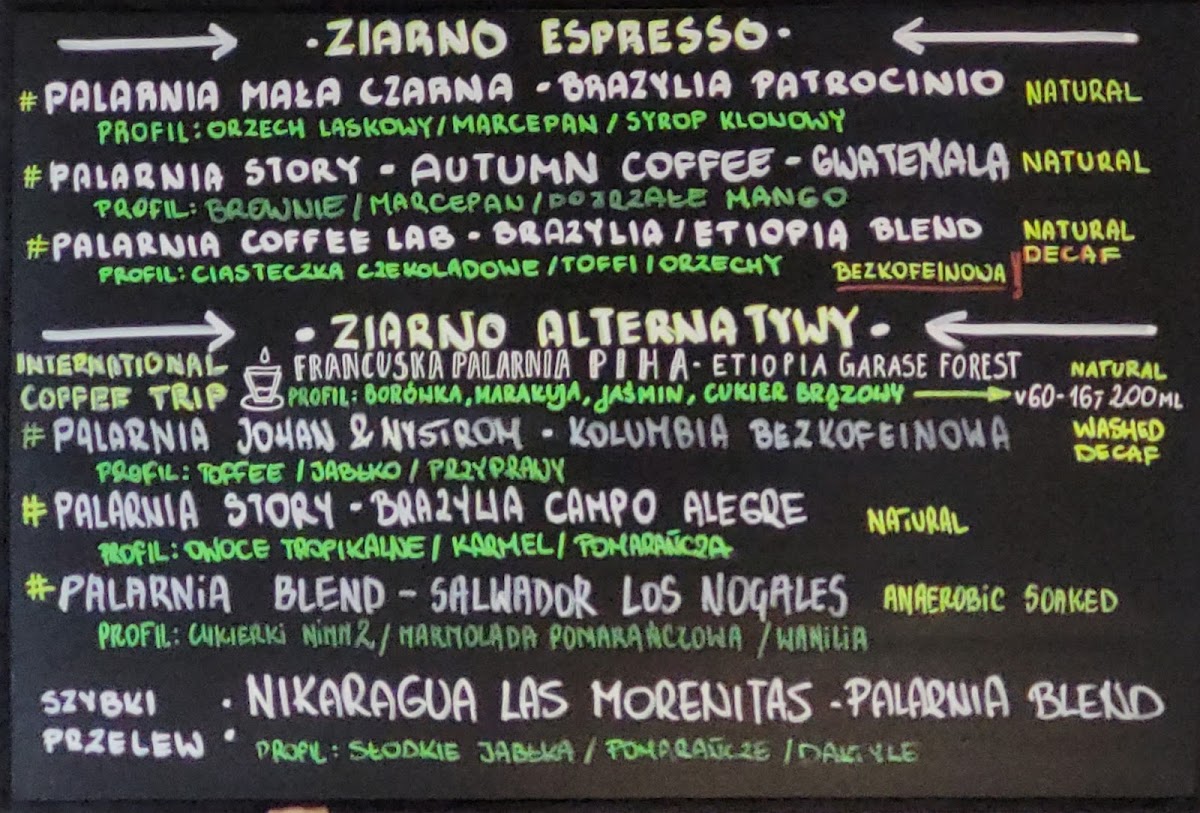 ·ZIARNO ESPRESSO·
#PALARNIA MAŁA CZARNA - BRAZYLIA PATROCINIO NATURAL
PROFIL: ORZECH LASKOWY/MARCEPAN/SYROP KLONOWY
#PALARNIA STORY - AUTUMN COFFEE - GWATEMALA NATURAL
PROFIL: BROWNIE/MARCEPAN/DOJRZAŁE MANGO
#PALARNIA COFFEE LAB - BRAZYLIA/ETIOPIA BLEND NATURAL DECAF
PROFIL: CIASTECZKA CZEKOLADOWE/TOFFI/ORZECHY BEZKOFEINOWA!
·ZIARNO ALTERNATYWY·
INTERNATIONAL COFFEE TRIP
FRANCUSKA PALARNIA PIHA - ETIOPIA GARASE FOREST NATURAL
PROFIL: BORÓWKA, MARAKUJA, JAŚMIN, CUKIER BRĄZOWY V60-16,- 200ML
#PALARNIA JOHAN & NYSTROM - KOLUMBIA BEZKOFEINOWA WASHED DECAF
PROFIL: TOFFEE/JABŁKO/PRZYPRAWY
#PALARNIA STORY - BRAZYLIA CAMPO ALEGRE NATURAL
PROFIL: OWOCE TROPIKALNE/KARMEL/POMARAŃCZA
#PALARNIA BLEND - SALWADOR LOS NOGALES ANAEROBIC SOAKED
PROFIL: CUKIERKI NIMM2/MARMOLADA POMARAŃCZOWA/WANILIA
SZYBKI PRZELEW : NIKARAGUA LAS MORENITAS - PALARNIA BLEND
PROFIL: SŁODKIE JABŁKA/POMARAŃCZE/DAKTYLE